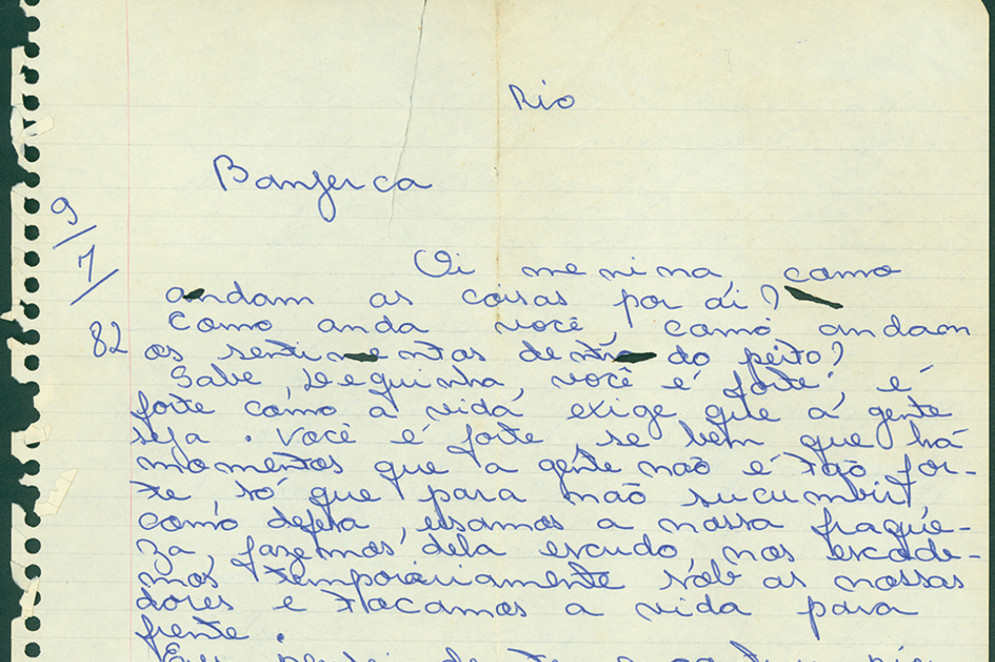 Rio
Banjerca
9/7/82
Oi menina como
andam as coisas por aí?
Como anda você, como andam
os sentimentos dentro do peito?
Sabe, você é forte, é
forte como a vida exige que a gente
seja. Você é forte, se bem que há
momentos que a gente não é tão for-
te, só que para não sucumbir
como defesa, usamos a nossa fraque-
za, fazemos dela escudo, nos escode-
mos temporáriamente sob as nossas
dores e tocamos a vida para
frente.